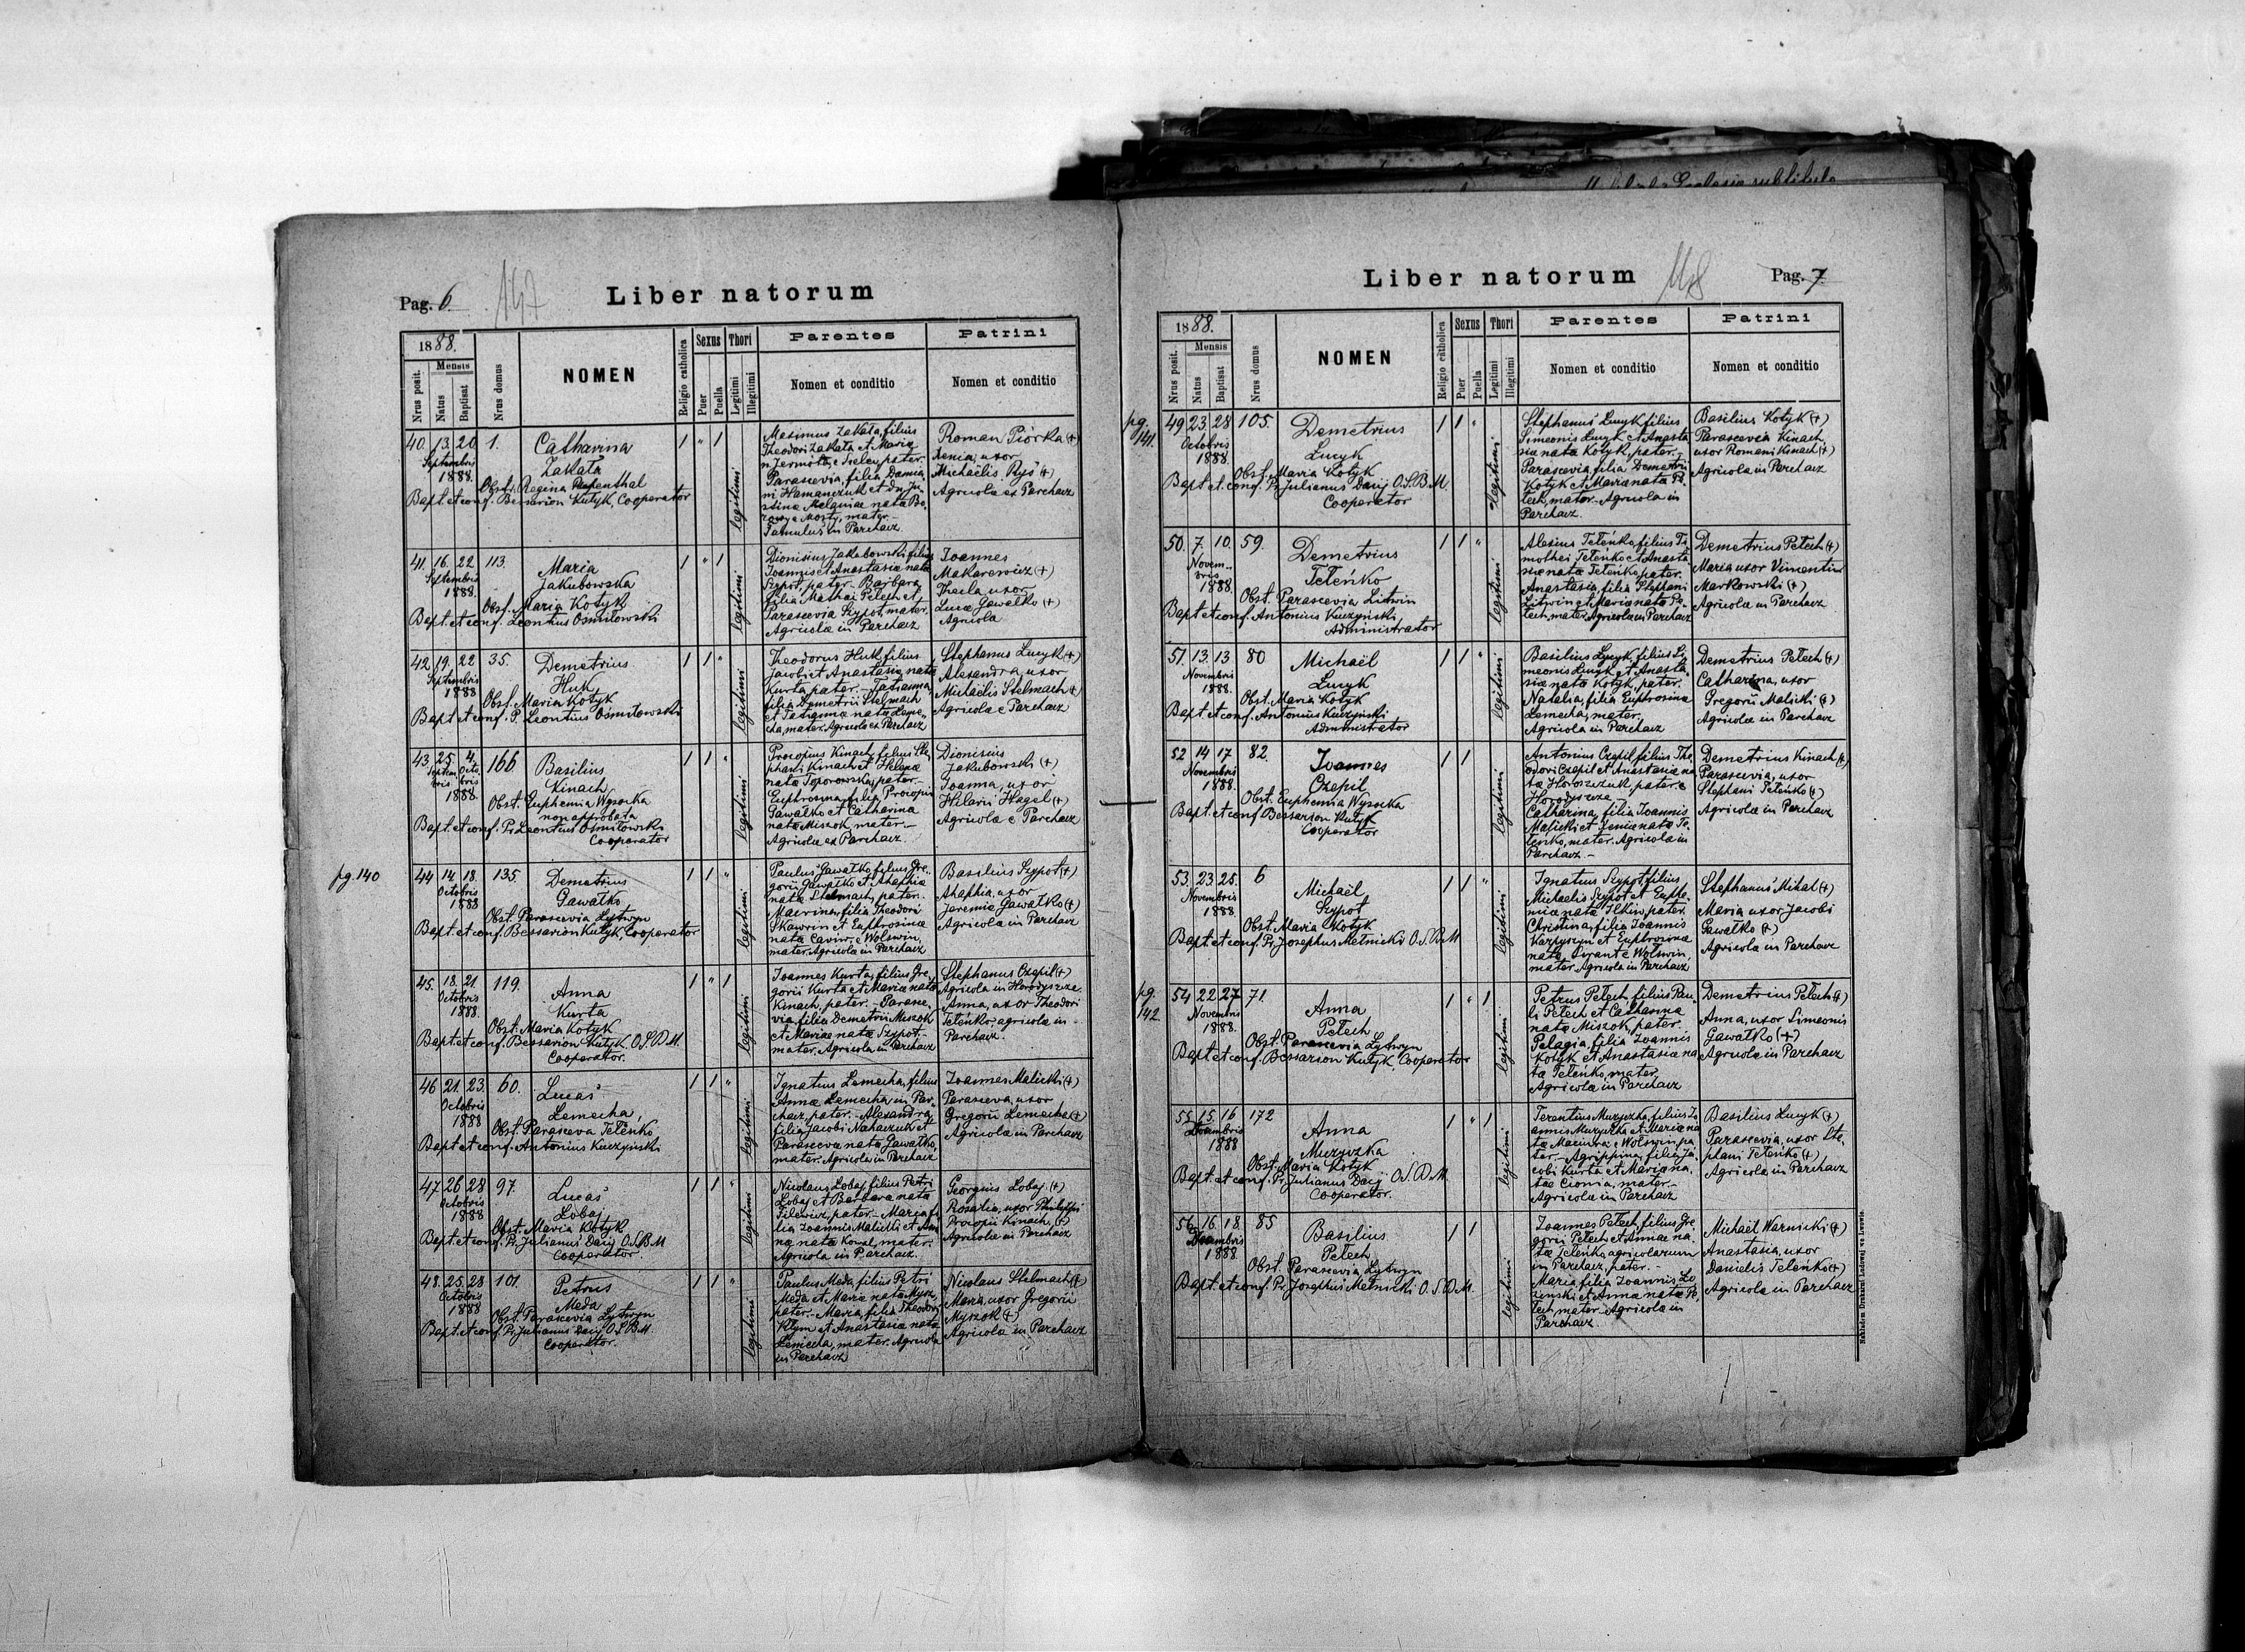 Pag. 6
147
Liber natorum
1888.
Mensis
Nrus posit.
Natus
Baptisat
Nrus domus
NOMEN
Religio catholica
Sexus
Puer
Puella
Thori
Legitimi
Illegitimi
Parentes
Nomen et conditio
Patrini
Nomen et conditio
40. 13. 20 1.
Septembris
1888.
Catharina
Zakała
Obst. Regina
Bapt. et conf. Bessarion Kutyk, Cooperator
1 " 1
legitimi
Maximus Zakała, filius
Theodori Zakała et Maria
pater.
Parascevia, filia Damia-
ni Hamanczuk et
mater.
Famulus in Parchacz
Roman Piórka (+)
Xenia, uxor
Michaëlis Ryś (+)
Agricola ex Parchacz
41. 16. 22 113.
Septembris
1888.
Maria
Jakubowska
Obst. Maria Kotyk
Bapt. et conf. Leontius Osmiłowski
1 " 1
legitimi
Dionisius Jakubowski, filius
Joannis et Anastasiæ nata
Szypot, pater. Barbara
filia Mathæi Petech et
Parascevia Szypot, mater.
Agricolæ in Parchacz
Joannes
Makarewicz (+)
Thecla uxor
Lucæ Gawałko (+)
Agricola
42. 19. 22 35.
Septembris
1888
Demetrius
Huk
Obst. Maria Kotyk
Bapt. et conf. P. Leontius Osmiłowski
1 1 "
legitimi
Theodorus Huk, filius
Jacobi et Anastasiæ nata
Kurta, pater. Tatianna,
filia Demetrii Stelmach
et Tatianna nata Leme-
cha, mater. Agricolæ ex Parchacz
Stephanus Lucyk (+)
Alexandra, uxor
Michaëlis Stelmach (+)
Agricolæ e Parchacz
43. 25. 4. 166.
Septembris Octobris
1888.
Basilius
Kinach
Obst. Euphemia Wysocka
non approbata
Bapt. et conf. P. Leontius Osmiłowski
Cooperator
1 1 "
legitimi
Procopius Kinach, filius Ste-
phani Kinach et Helenæ
nata Toporowska, pater.
Euphrosina, filia Procopii
Gawałko et Catharina
nata Miszok, mater.
Agricolæ ex Parchacz.
Dionisius
Jakubowski (+)
Joanna, uxor
Hilarii Hagel (+)
Agricolæ e Parchacz
pg. 140
44 14. 18. 135.
Octobris
1888
Demetrius
Gawałko
Obst. Parascevia Lytwyn
Bapt. et conf. Bessarion Kutyk, Cooperator
1 1 "
legitimi
Paulus Gawałko, filius Gre-
gorii Gawałko et Ahaphia
nata Stelmach, pater.
Macrina, filia Theodori
Skawron et Euphrosinæ
nata Cavin, e Wolswin,
mater. Agricolæ in Parchacz
Basilius Szypot (+)
Ahaphia, uxor
Jeremiæ Gawałko (+)
Agricolæ in Parchacz
45. 18. 21. 119.
Octobris
1888.
Anna
Kurta
Obst. Maria Kotyk
Bapt. et conf. Bessarion Kutyk O.S.B.M.
Cooperator.
1 " 1
legitimi
Joannes Kurta, filius Gre-
gorii Kurta et Mariæ nata
Kinach, pater. Parasce-
via, filia Demetrii Miszok
et Mariæ nata Szypot
mater. Agricolæ in Parchacz
Stephanus Czepil (+)
Agricola in Horodyszcze.
Anna, uxor Theodori
Teteńko, agricola in
Parchacz.
46 21. 23. 60.
Octobris
1888
Lucas
Lemecha,
Obst. Parasceva Teteńko
Bapt. et conf. Antonius Kuczyński
1 1 "
legitimi
Ignatius Lemecha, filius
Annæ Lemecha, in Par-
chacz, pater. Alexandra
filia Jacobi Nahaczuk et
Parasceva nata Gawałko,
mater. Agricolæ in Parchacz
Joannes Malicki (+)
Parasceva, uxor
Gregorii Lemecha (+)
Agricolæ in Parchacz
47 26 28 97.
Octobris
1888
Lucas
Lobaj
Obst. Maria Kotyk
Bapt. et conf. P. Julianus Dacij O.S.B.M.
Cooperator.
1 1 "
legitimi
Nicolaus Lobaj, filius Petri
Lobaj et Barbara nata
Filewicz, pater. Maria, fi-
lia Joannis Malicki et An-
næ nata Kowal, mater.
Agricola in Parchacz.
Georgius Lobaj (+)
Rosalia, uxor Philippi
Procopii Kinach, (+)
Agricolæ in Parchacz
48. 25. 28 101.
Octobris
1888
Petrus
Meda
Obst. Parascevia Lytwyn
Bapt. et conf. P. Julianus Dacij O.S.B.M.
Cooperator.
1 1 "
legitimi
Paulus Meda, filius Petri
Meda et Mariæ nata
pater. Maria, filia Theodori
Klym et Anastasiæ nata
Lemecha, mater. Agricolæ
in Parchacz
Nicolaus Stelmach (+)
Maria, uxor Gregorii
Myszok (+)
Agricolæ in Parchacz
Liber natorum
148
Pag. 7
1888.
Mensis
Nrus posit.
Natus
Baptisat
Nrus domus
NOMEN
Religio catholica
Sexus
Puer
Puella
Thori
Legitimi
Illegitimi
Parentes
Nomen et conditio
Patrini
Nomen et conditio
pg. 141.
49 23 28 105.
Octobris
1888.
Demetrius
Lucyk
Obst. Maria Kotyk
Bapt. et conf. P. Julianus Dacij O.S.B.M.
Cooperator
1 1 "
legitimi
Stephanus Lucyk filius
Simeonis Lucyk et Anasta-
siæ nata Kotyk, pater.
Parascevia, filia Demetrii
Kotyk et Maria nata Pe-
tech, mater. Agricola in
Parchacz.
Basilius Kotyk (+)
Parascevia Kinach
uxor Romani Kinach (+)
Agricola in Parchacz
50. 7. 10. 59.
Novem-
bris
1888.
Demetrius
Teteńko
Obst. Parascevia Litwin
Bapt. et conf. Antonius Kuczyński
Administrator
1 1 "
legitimi
Alexius Teteńko, filius Ti-
mothei Teteńko et Anasta-
siæ nata Teteńko, pater.
Anastasia, filia Stephani
Litwin et Maria nata Pe-
tech, mater. Agricolæ in Parchacz
Demetrius Petech (+)
Maria uxor Vincentii
Markowski (+)
Agricolæ in Parchacz
51. 13. 13. 80
Novembris
1888.
Michaël
Lucyk
Obst. Maria Kotyk
Bapt. et conf. Antonius Kuczyński
Administrator
1 1 "
legitimi
Basilius Lucyk, filius Si-
meonis Lucyk et Anasta-
siæ nata Kotyk, pater.
Natalia, filia Euphrosina
Lemecha, mater.
Agricola in Parchacz
Demetrius Petech (+)
Catharina, uxor
Gregorii Malicki (+)
Agricolæ in Parchacz
52 14 17 82.
Novembris
1888.
Joannes
Czepil
Obst. Euphemia Wysocka
Bapt. et conf. Bessarion Kutyk
Cooperator
1 1
legitimi
Antonius Czepil, filius The-
odori Czepil et Anastasiæ na-
ta Horoszczuk, pater. e
Horodyszcze
Catharina, filia Joannis
Malicki et Xeniæ nata Te-
teńko, mater. Agricola in
Parchacz.
Demetrius Kinach (+)
Parascevia, uxor
Stephani Teteńko (+)
Agricolæ in Parchacz
53. 23. 25. 6
Novembris
1888.
Michaël
Szypot
Obst. Maria Kotyk
Bapt. et conf. P. Josephus Melnicki O.S.B.M.
1 1 "
legitimi
Ignatius Szypot, filius
Michaelis Szypot et Euphe-
miæ nata Ilkiw, pater.
Christina, filia Joannis
Karpyszyn et Euphrosinæ
nata Sirant e Wolswin,
mater. Agricola in Parchacz
Stephanus Mikal (+)
Maria uxor Jacobi
Gawałko (+)
Agricola in Parchacz
pg. 142.
54 22 27 71.
Novembris
1888.
Anna
Petech
Obst. Parascevia Lytwyn
Bapt. et conf. Bessarion Kutyk Cooperator
1 " 1
legitimi
Petrus Petech, filius Pau-
li Petech et Catharina
nata Miszok, pater.
Pelagia, filia Joannis
Kotyk et Anastasiæ na-
ta Teteńko, mater.
Agricolæ in Parchacz
Demetrius Petech (+)
Anna, uxor Simeonis
Gawałko (+)
Agricola in Parchacz
55. 15. 16 172
Decembris
1888
Anna
Muzyczka
Obst. Maria Kotyk
Bapt. et conf. P. Julianus Dacij O.S.B.M.
Cooperator.
1 " 1
legitimi
Terentius Muzyczka, filius Jo-
annis Muzyczka et Mariæ na-
ta Maciura, e Wolswin, pa-
ter. Agrippina, filia Ja-
cobi Kurta et Mariæ na-
tæ Cionia, mater.
Agricolæ in Parchacz
Basilius Lucyk (+)
Parascevia, uxor Ste-
phani Teteńko (+)
Agricola in Parchacz
56. 16. 18. 85
Decembris
1888.
Basilius
Petech
Obst. Parascevia Lytwyn
Bapt. et conf. P. Josephus Melnicki O.S.B.M.
1 1
legitimi
Joannes Petech, filius Gre-
gorii Petech et Annæ na-
tæ Teteńko, agricolarum
in Parchacz, pater.
Maria, filia Joannis Lo-
zinski et Anna nata Pe-
tech, mater. Agricola in
Parchacz.
Michaël Warnicki (+)
Anastasia, uxor
Danielis Teteńko (+)
Agricolæ in Parchacz
Nakładem Drukarni Ludowej we Lwowie.